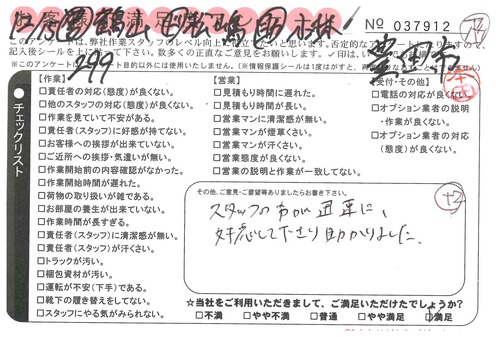 お客様満足度
No 037912
このアンケートは、弊社作業スタッフのレベル向上に役立てたいと思います。否定的なアンケートになりますので、
記入後シールを上に
豊岡市
1299
【作業】
□責任者の対応(態度)が良くない。
□他のスタッフの対応(態度)が良くない。
□作業を見ていて不安がある。
□責任者(スタッフ)に好感が持てない。
□お客様への挨拶が出来ていない。
□ご近所への挨拶・気遣いが無い。
□作業開始前の内容確認がなかった。
□作業開始時間が遅れた。
□荷物の取り扱いが雑である。
□お部屋の養生が出来ていない。
□作業時間が長すぎる。
□責任者(スタッフ)に清潔感が無い。
□責任者(スタッフ)が汗くさい。
□トラックが汚い。
□梱包資材が汚い。
□運転が不安(下手)である。
□靴下の履き替えをしてない。
□スタッフにやる気がみられない。
【営業】
□見積もり時間に遅れた。
□見積もり時間が長い。
□営業マンに清潔感が無い。
□営業マンが煙草くさい。
□営業マンが汗くさい。
□営業態度が良くない。
□営業の説明と作業が一致してない。
【受付・その他】
□電話の対応が良くない。
□オプション業者の説明
・作業が良くない。
□オプション業者の対応
(態度)が良くない。
チェックリスト
その他、ご意見・ご要望等ありましたらお書き下さい。
スタッフの方が迅速に、
対応して下さり助かりました。
☆当社をご利用いただきまして、ご満足いただけたでしょうか?
□不満 □やや不満 □普通 □やや満足 □満足